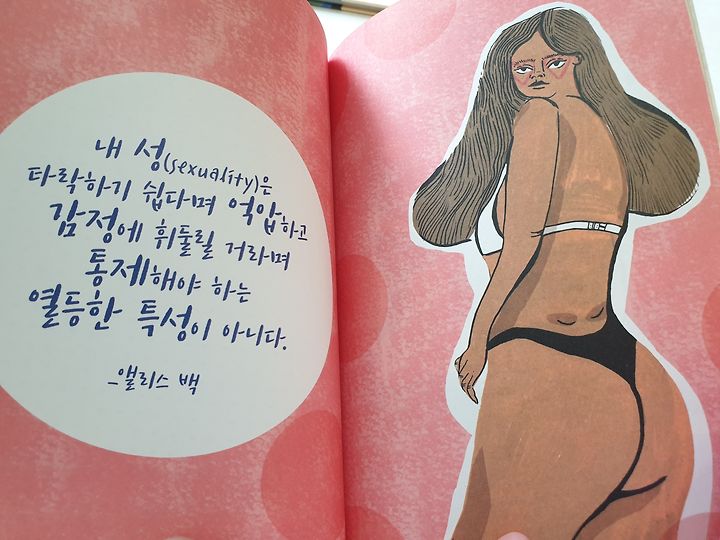 내 성(sexuality)은
타락하기 쉽다며 억압하고
감정에 휘둘릴 거라며
통제해야 하는
열등한 특성이 아니다.
-앨리스 백